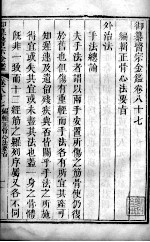 御纂醫宗金鑑卷八十七
編輯正骨心法要旨
外治法
手法總論
夫手法者謂以兩手安置所傷之筋骨使仍復
於舊也但傷有重輕而手法各有所宜其痊可
之遲速及遺留殘疾與否皆關乎手法之所施
得宜或失其宜或未盡其法也蓋一身之骨體
既非一致而十二經筋之羅列序屬又各不同